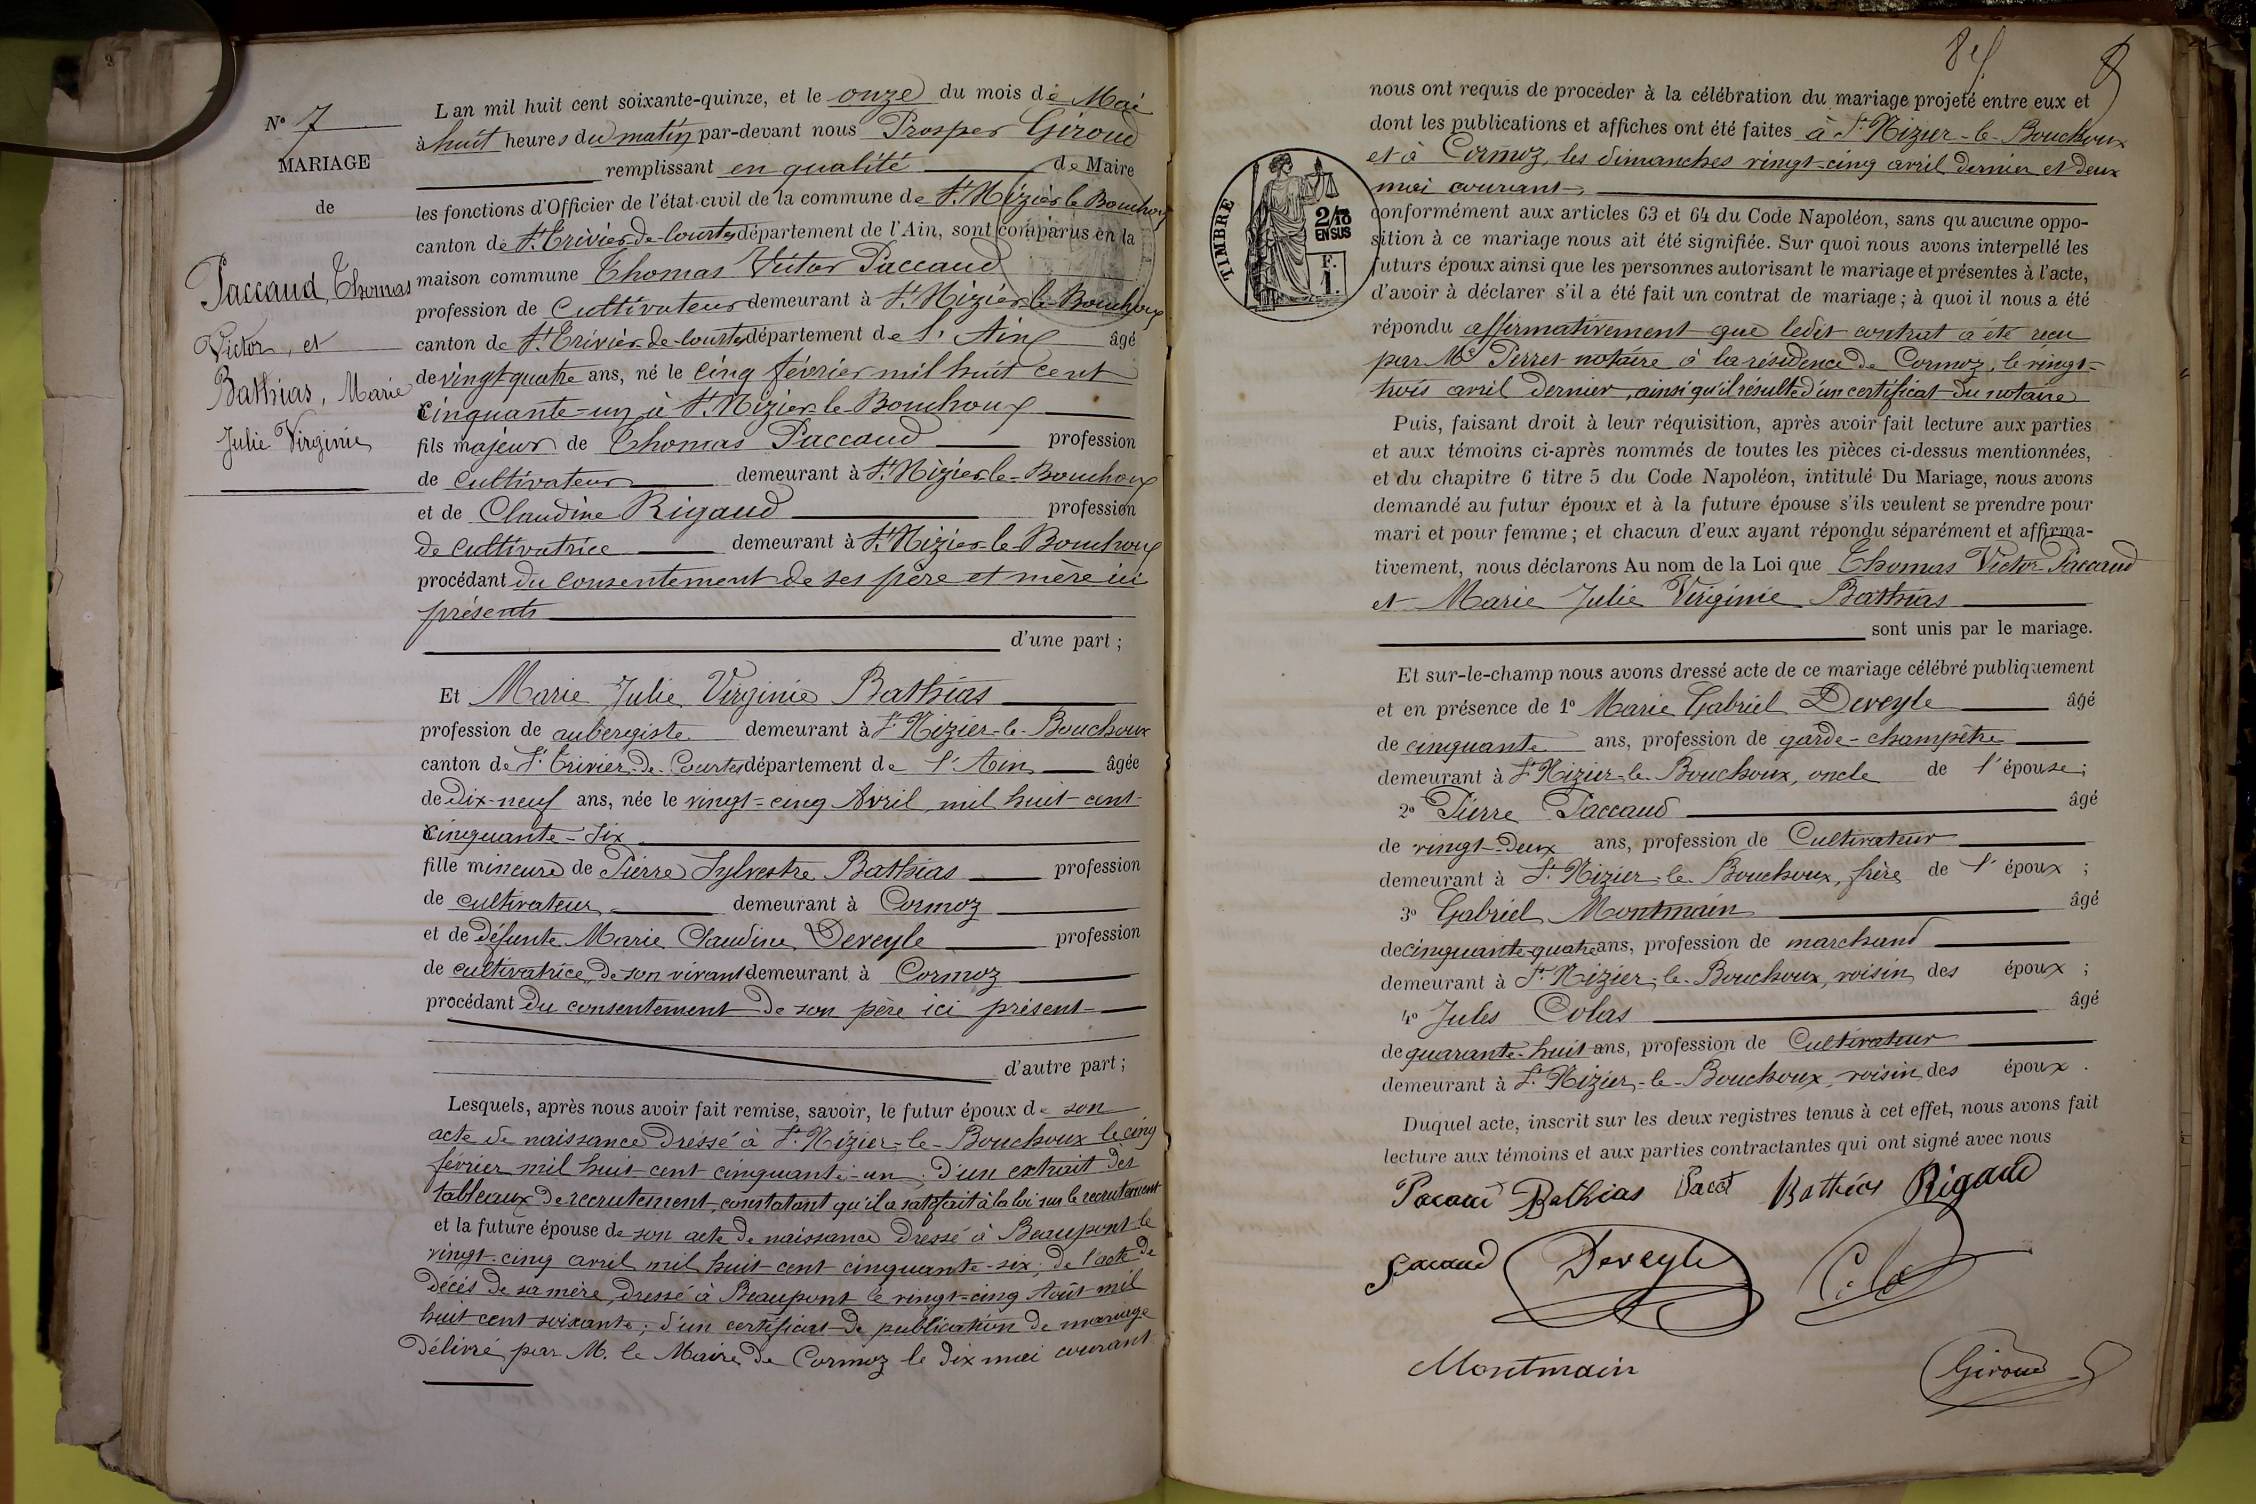 N° 7
MARIAGE
de
Paccaud, Thomas
Victor, et
Bathias, Marie
Julie Virginie
L'an mil huit cent soixante-quinze, et le onze du mois de Mai
à huit heures du matin par-devant nous Prosper Giroud
remplissant en qualité de Maire
les fonctions d'Officier de l'état-civil de la commune de St. Nizier le Bouchoux
canton de St. Trivier-de-Courtes département de l'Ain, sont comparus en la
maison commune Thomas Victor Paccaud
profession de Cultivateur demeurant à St. Nizier-le-Bouchoux
canton de St. Trivier-de-Courtes département de l'Ain âgé
de vingt quatre ans, né le cinq février mil huit cent
cinquante-un à St. Nizier-le-Bouchoux
fils majeur de Thomas Paccaud profession
de cultivateur demeurant à St. Nizier-le-Bouchoux
et de Claudine Rigaud profession
de cultivatrice demeurant à St. Nizier-le-Bouchoux
procédant du consentement de ses père et mère ici
présents
d'une part ;
Et Marie Julie Virginie Bathias
profession de aubergiste demeurant à St. Nizier-le-Bouchoux
canton de St. Trivier-de-Courtes département de l'Ain âgée
de dix-neuf ans, née le vingt-cinq Avril mil huit-cent-
cinquante-six
fille mineure de Pierre Sylvestre Bathias profession
de cultivateur demeurant à Cormoz
et de défunte Marie Claudine Deveyle profession
de cultivatrice de son vivant demeurant à Cormoz
procédant du consentement de son père ici présent
d'autre part ;
Lesquels, après nous avoir fait remise, savoir, le futur époux de son
acte de naissance dressé à St. Nizier-le-Bouchoux le cinq
février mil huit-cent cinquante-un ; d'un extrait des
tableaux de recrutement, constatant qu'il a satisfait à la loi sur le recrutement
et la future épouse de son acte de naissance dressé à Beaupont le
vingt-cinq avril mil huit-cent cinquante-six ; de l'acte de
décès de sa mère, dressé à Beaupont le vingt-cinq Août mil
huit cent soixante ; d'un certificat de publication de mariage
délivré par M. le Maire de Cormoz le dix mai courant
8
nous ont requis de procéder à la célébration du mariage projeté entre eux et
dont les publications et affiches ont été faites à St. Nizier-le-Bouchoux
et à Cormoz, les dimanches vingt-cinq avril dernier et deux
mai courant
TIMBRE
2/10
EN SUS
F.
1.
conformément aux articles 63 et 64 du Code Napoléon, sans qu'aucune oppo-
sition à ce mariage nous ait été signifiée. Sur quoi nous avons interpellé les
futurs époux ainsi que les personnes autorisant le mariage et présentes à l'acte,
d'avoir à déclarer s'il a été fait un contrat de mariage ; à quoi il nous a été
répondu affirmativement que ledit contrat a été reçu
par Me Perret notaire à la résidence de Cormoz, le vingt-
trois avril dernier, ainsi qu'il résulte d'un certificat du notaire
Puis, faisant droit à leur réquisition, après avoir fait lecture aux parties
et aux témoins ci-après nommés de toutes les pièces ci-dessus mentionnées,
et du chapitre 6 titre 5 du Code Napoléon, intitulé Du Mariage, nous avons
demandé au futur époux et à la future épouse s'ils veulent se prendre pour
mari et pour femme ; et chacun d'eux ayant répondu séparément et affirma-
tivement, nous déclarons Au nom de la Loi que Thomas Victor Paccaud
et Marie Julie Virginie Bathias
sont unis par le mariage.
Et sur-le-champ nous avons dressé acte de ce mariage célébré publiquement
et en présence de 1° Marie Gabriel Deveyle âgé
de cinquante ans, profession de garde-champêtre
demeurant à St. Nizier-le-Bouchoux, oncle de l'épouse ;
2° Pierre Paccaud âgé
de vingt-deux ans, profession de Cultivateur
demeurant à St. Nizier-le-Bouchoux, frère de l'époux ;
3° Gabriel Montmain âgé
de cinquante-quatre ans, profession de marchand
demeurant à St. Nizier-le-Bouchoux, voisin des époux ;
4° Jules Colas âgé
de quarante-huit ans, profession de Cultivateur
demeurant à St. Nizier-le-Bouchoux, voisin des époux.
Duquel acte, inscrit sur les deux registres tenus à cet effet, nous avons fait
lecture aux témoins et aux parties contractantes qui ont signé avec nous
Pacaud Bathias Bathias Rigaud
Pacaud Deveyle
Montmain Giroud